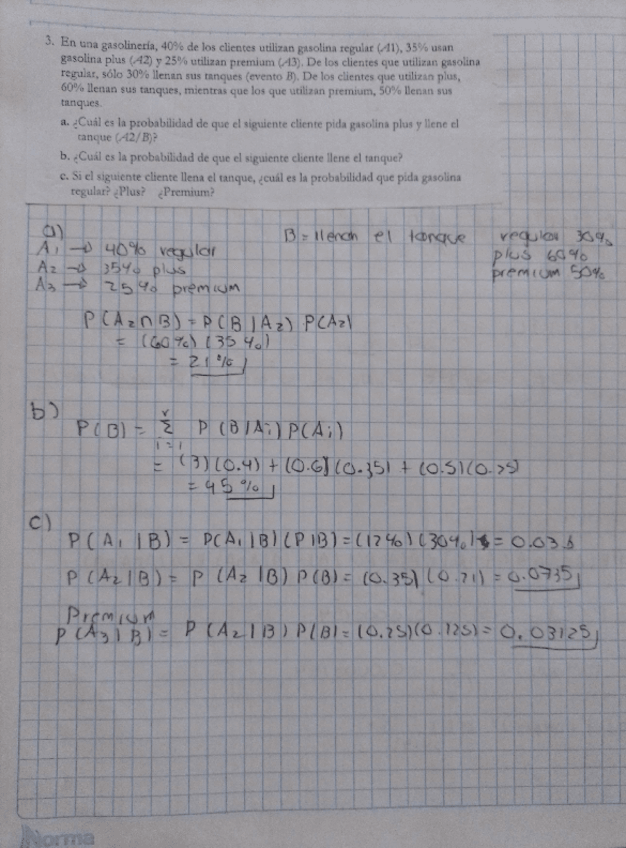 3. En una gasolinería, 40% de los clientes utilizan gasolina regular (A1), 35% usan
gasolina plus (A2) y 25% utilizan premium (A3). De los clientes que utilizan gasolina
regular, sólo 30% llenan sus tanques (evento B). De los clientes que utilizan plus,
60% llenan sus tanques, mientras que los que utilizan premium, 50% llenan sus
tanques.
a. ¿Cuál es la probabilidad de que el siguiente cliente pida gasolina plus y llene el
tanque (A2/B)?
b. ¿Cuál es la probabilidad de que el siguiente cliente llene el tanque?
c. Si el siguiente cliente llena el tanque, ¿cuál es la probabilidad que pida gasolina
regular? ¿Plus? ¿Premium?
a)
A₁ → 40% regular
A₂ → 35% plus
A₃ → 25% premium
B = llenan el tanque
regular 30%
plus 60%
premium 50%
P(A₂∩B) = P(B|A₂) P(A₂)
= (60%)(35%)
= 21%
b)
P(B) = Σ P(B|Ai) P(Ai)
r
i = 1
= (3)(0.4) + (0.6)(0.35) + (0.5)(0.25)
= 45%
c)
P(A₁|B) = P(A₁|B)(P|B) = (12%)(30%) = 0.036
P(A₂|B) = P(A₂|B) P(B) = (0.35)(0.21) = 0.0735
Premium
P(A₃|B) = P(A₂|B) P(B) = (0.25)(0.125) = 0.03125
Norma